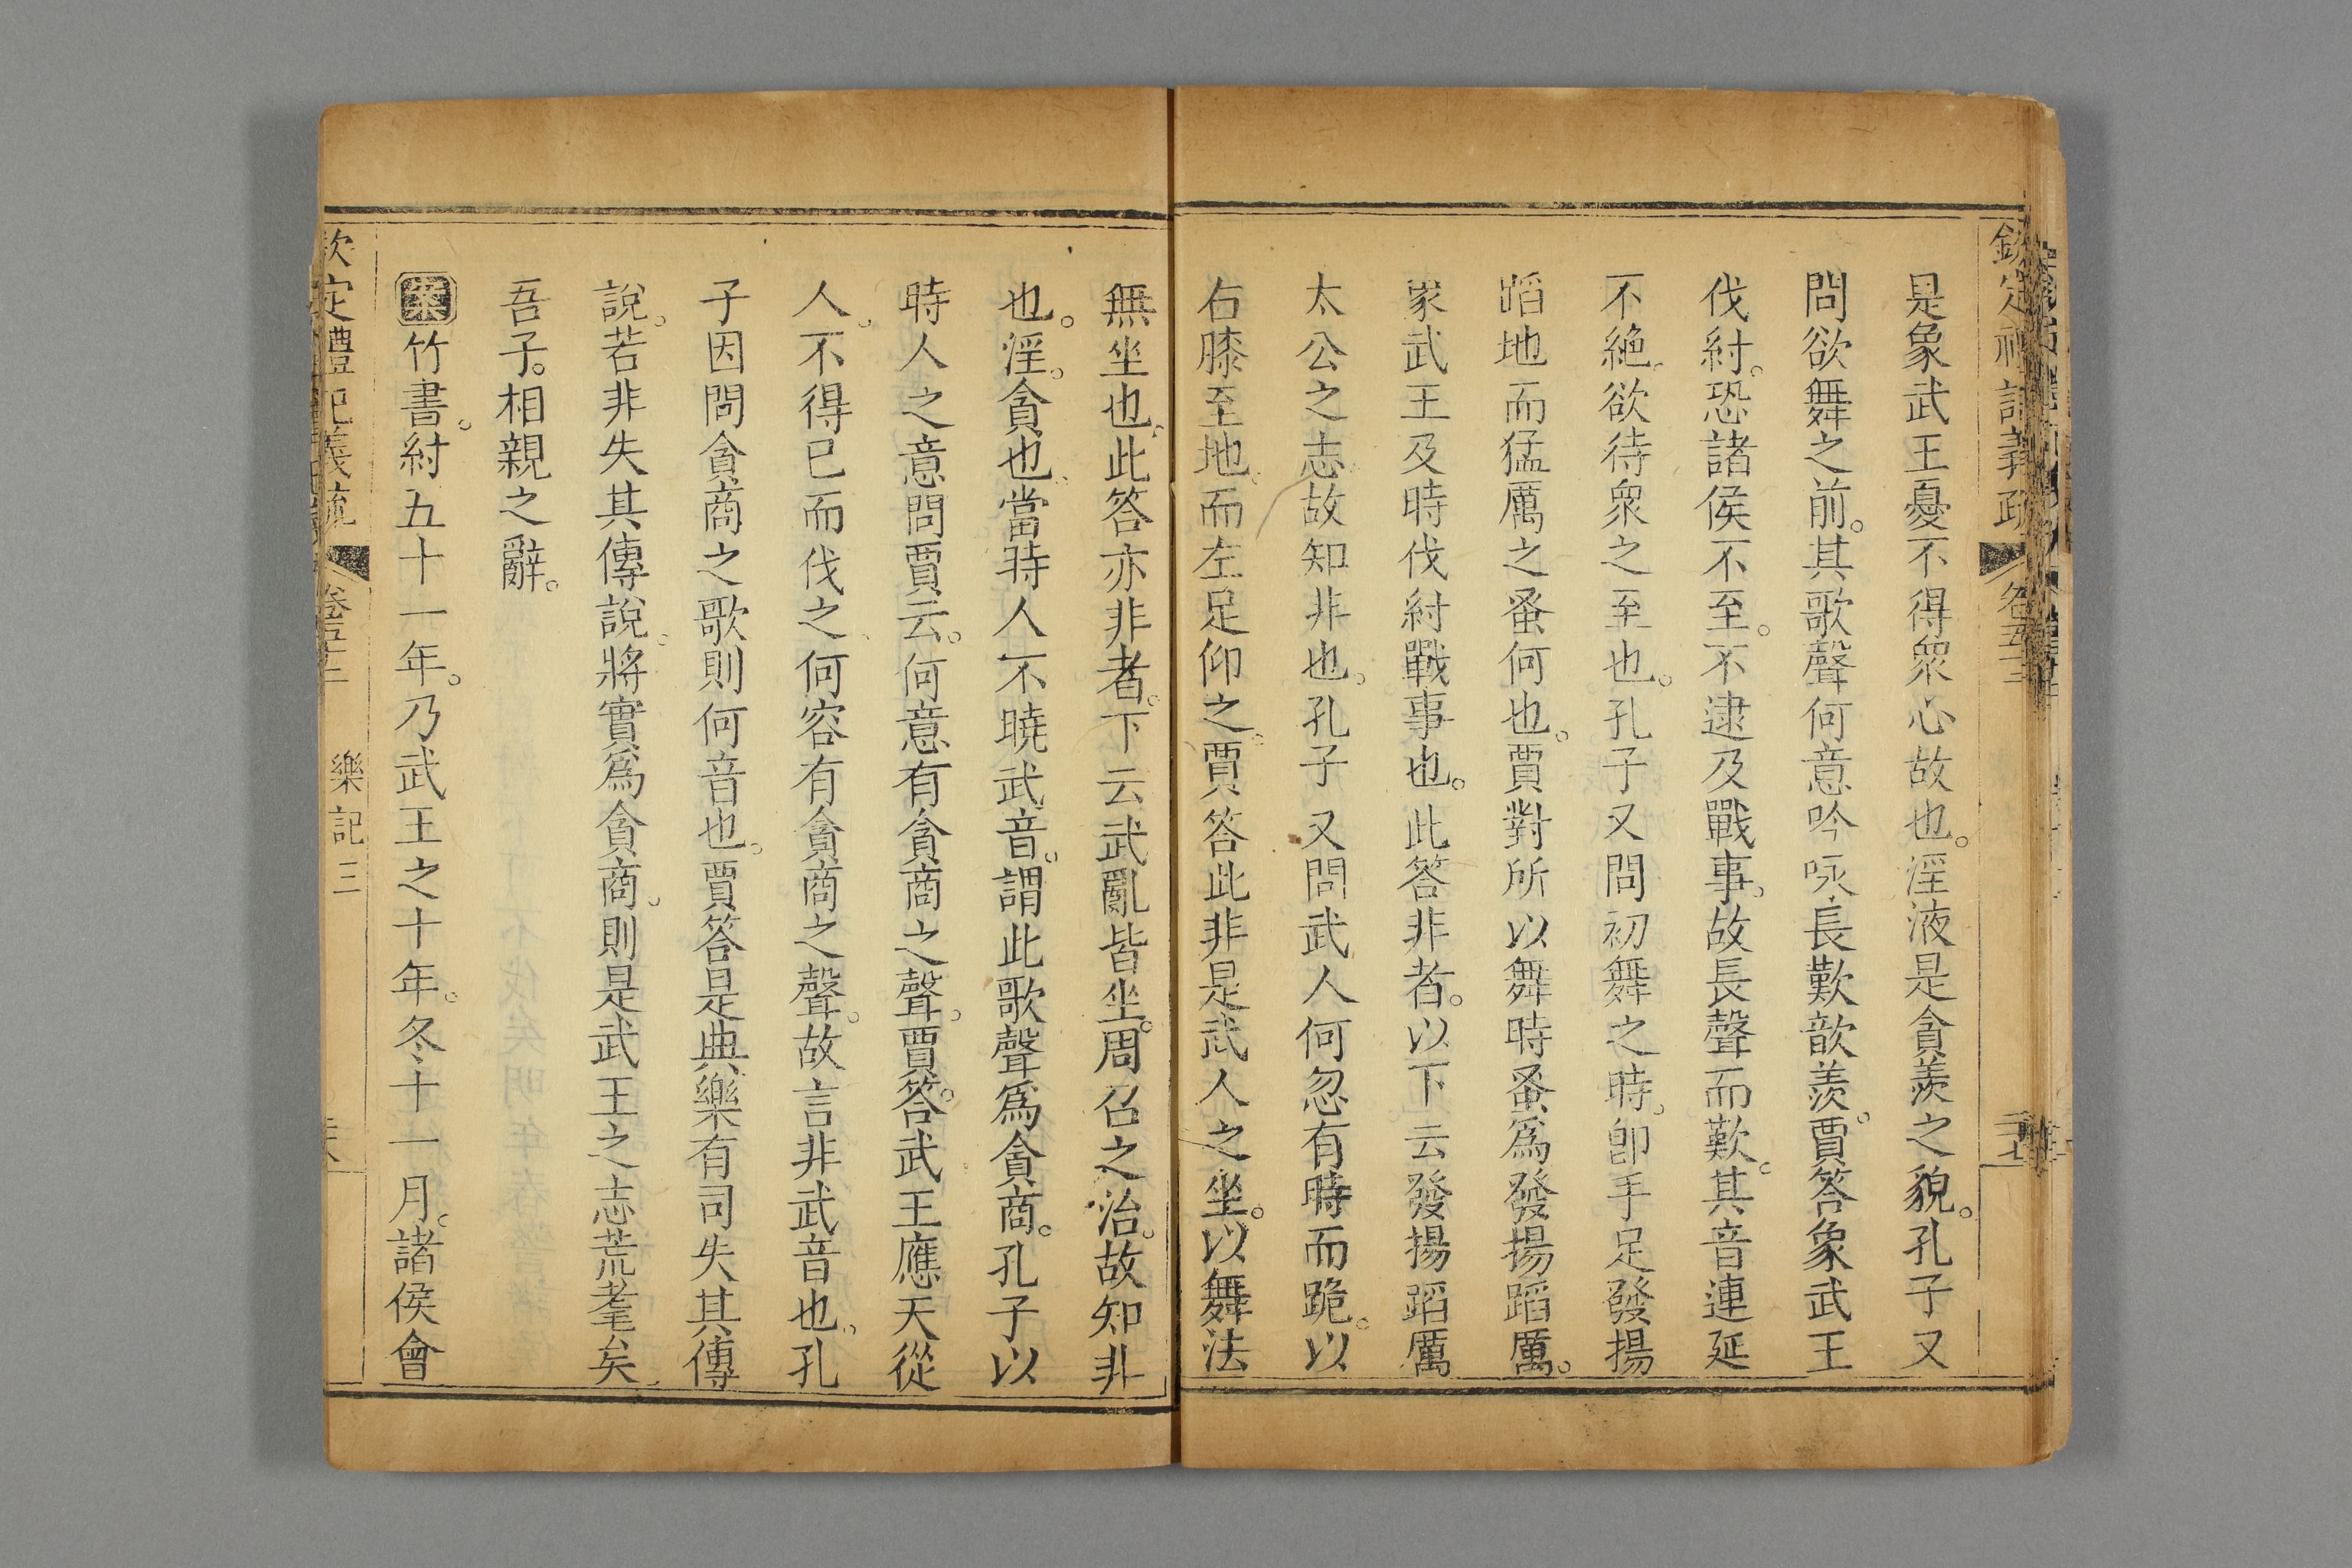 是象武王憂不得衆心故也。淫液是貪羨之貌。孔子又
問欲舞之前。其歌聲何意吟咏長歎歆羨。賈答象武王
伐紂。恐諸侯不至。不逮及戰事。故長聲而歎。其音連延
不絶。欲待衆之至也。孔子又問初舞之時。卽手足發揚
蹈地而猛厲之蚤何也。賈對所以舞時蚤爲發揚蹈厲。
象武王及時伐紂戰事也。此答非者。以下云發揚蹈厲
太公之志故知非也。孔子又問武人何忽有時而跪。以
右膝至地。而左足仰之。賈答此非是武人之坐。以舞法
無坐也。此答亦非者。下云武亂皆坐。周召之治。故知非
也。淫。貪也。當時人不曉武音。謂此歌聲爲貪商。孔子以
時人之意問賈云。何意有貪商之聲。賈答。武王應天從
人。不得已而伐之。何容有貪商之聲。故言非武音也。孔
子因問貪商之歌則何音也。賈答是典樂有司失其傳
說。若非失其傳說。將實爲貪商。則是武王之志荒耄矣
吾子。相親之辭。
案竹書。紂五十一年。乃武王之十年。冬十一月。諸侯會
欽定禮記義疏 卷五十二 樂記三